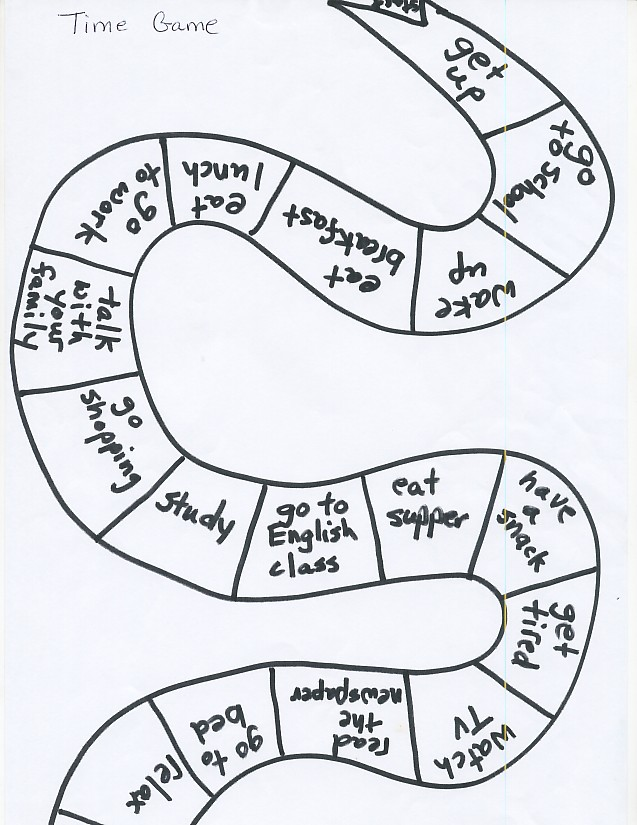 Time Game
start
get
up
go
to
school
wake
up
eat
breakfast
eat
lunch
go
to work
talk
with
your
family
go
shopping
study
go to
English
class
eat
supper
have
a
snack
get
tired
watch
TV
read
the
newspaper
go to
bed
relax